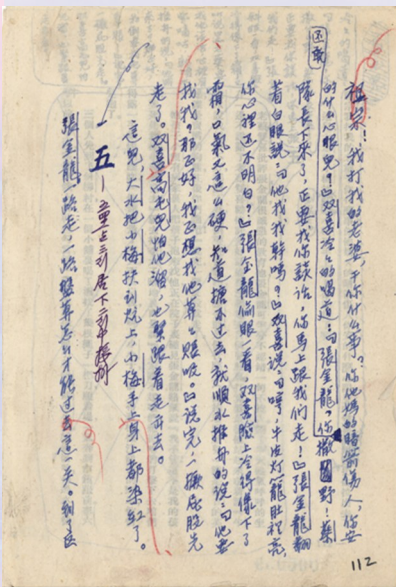 祖宗！我打我的老婆，干你什么事？你他媽的暗箭傷人，你安
还敢
的什么心眼兒？」双喜冷冷的喝道：「張金龍，你撒野！蔡
隊長下來了，正要找你談話，你馬上跟我們走！」張金龍翻
着白眼說：「他找我幹嗎？」双喜說：「哼，牛皮灯籠肚裡亮，
你心裡还不明白？」張金龍偷眼一看，双喜臉上冷得像下了
霜，口氣又這么硬，知道搪不过去，就順水推舟的說：「他要
找我？那正好，我正想找他算算賬呢。」說完，一撅屁股先
走了。双喜高屯兒怕他溜，也緊跟着走出去。
這兒，大水把小梅扶到炕上，小梅手上身上都染紅了。
五
張金龍一路走，一路盤算怎么才能过這一关。到了區
112